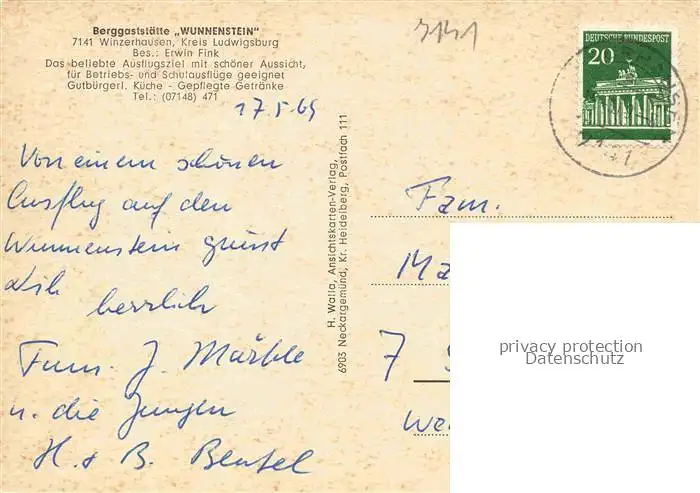 Berggaststätte „WUNNENSTEIN"
7141 Winzerhausen, Kreis Ludwigsburg
Bes.: Erwin Fink
Das beliebte Ausflugsziel mit schöner Aussicht,
für Betriebs- und Schulausflüge geeignet
Gutbürgerl. Küche - Gepflegte Getränke
Tel.: (07148) 471
17.5.69
Von einem schönen
Ausflug auf den
Wunnenstein grüsst
Dich herzlich
Fam. J. Märkle
u. die Jungen
H. + B. Bentel
H. Walla, Ansichtskarten-Verlag,
6903 Neckargemünd, Kr. Heidelberg, Postfach 111
7141
DEUTSCHE BUNDESPOST
20
Fam.
Ma
7 S
We
privacy protection
Datenschutz